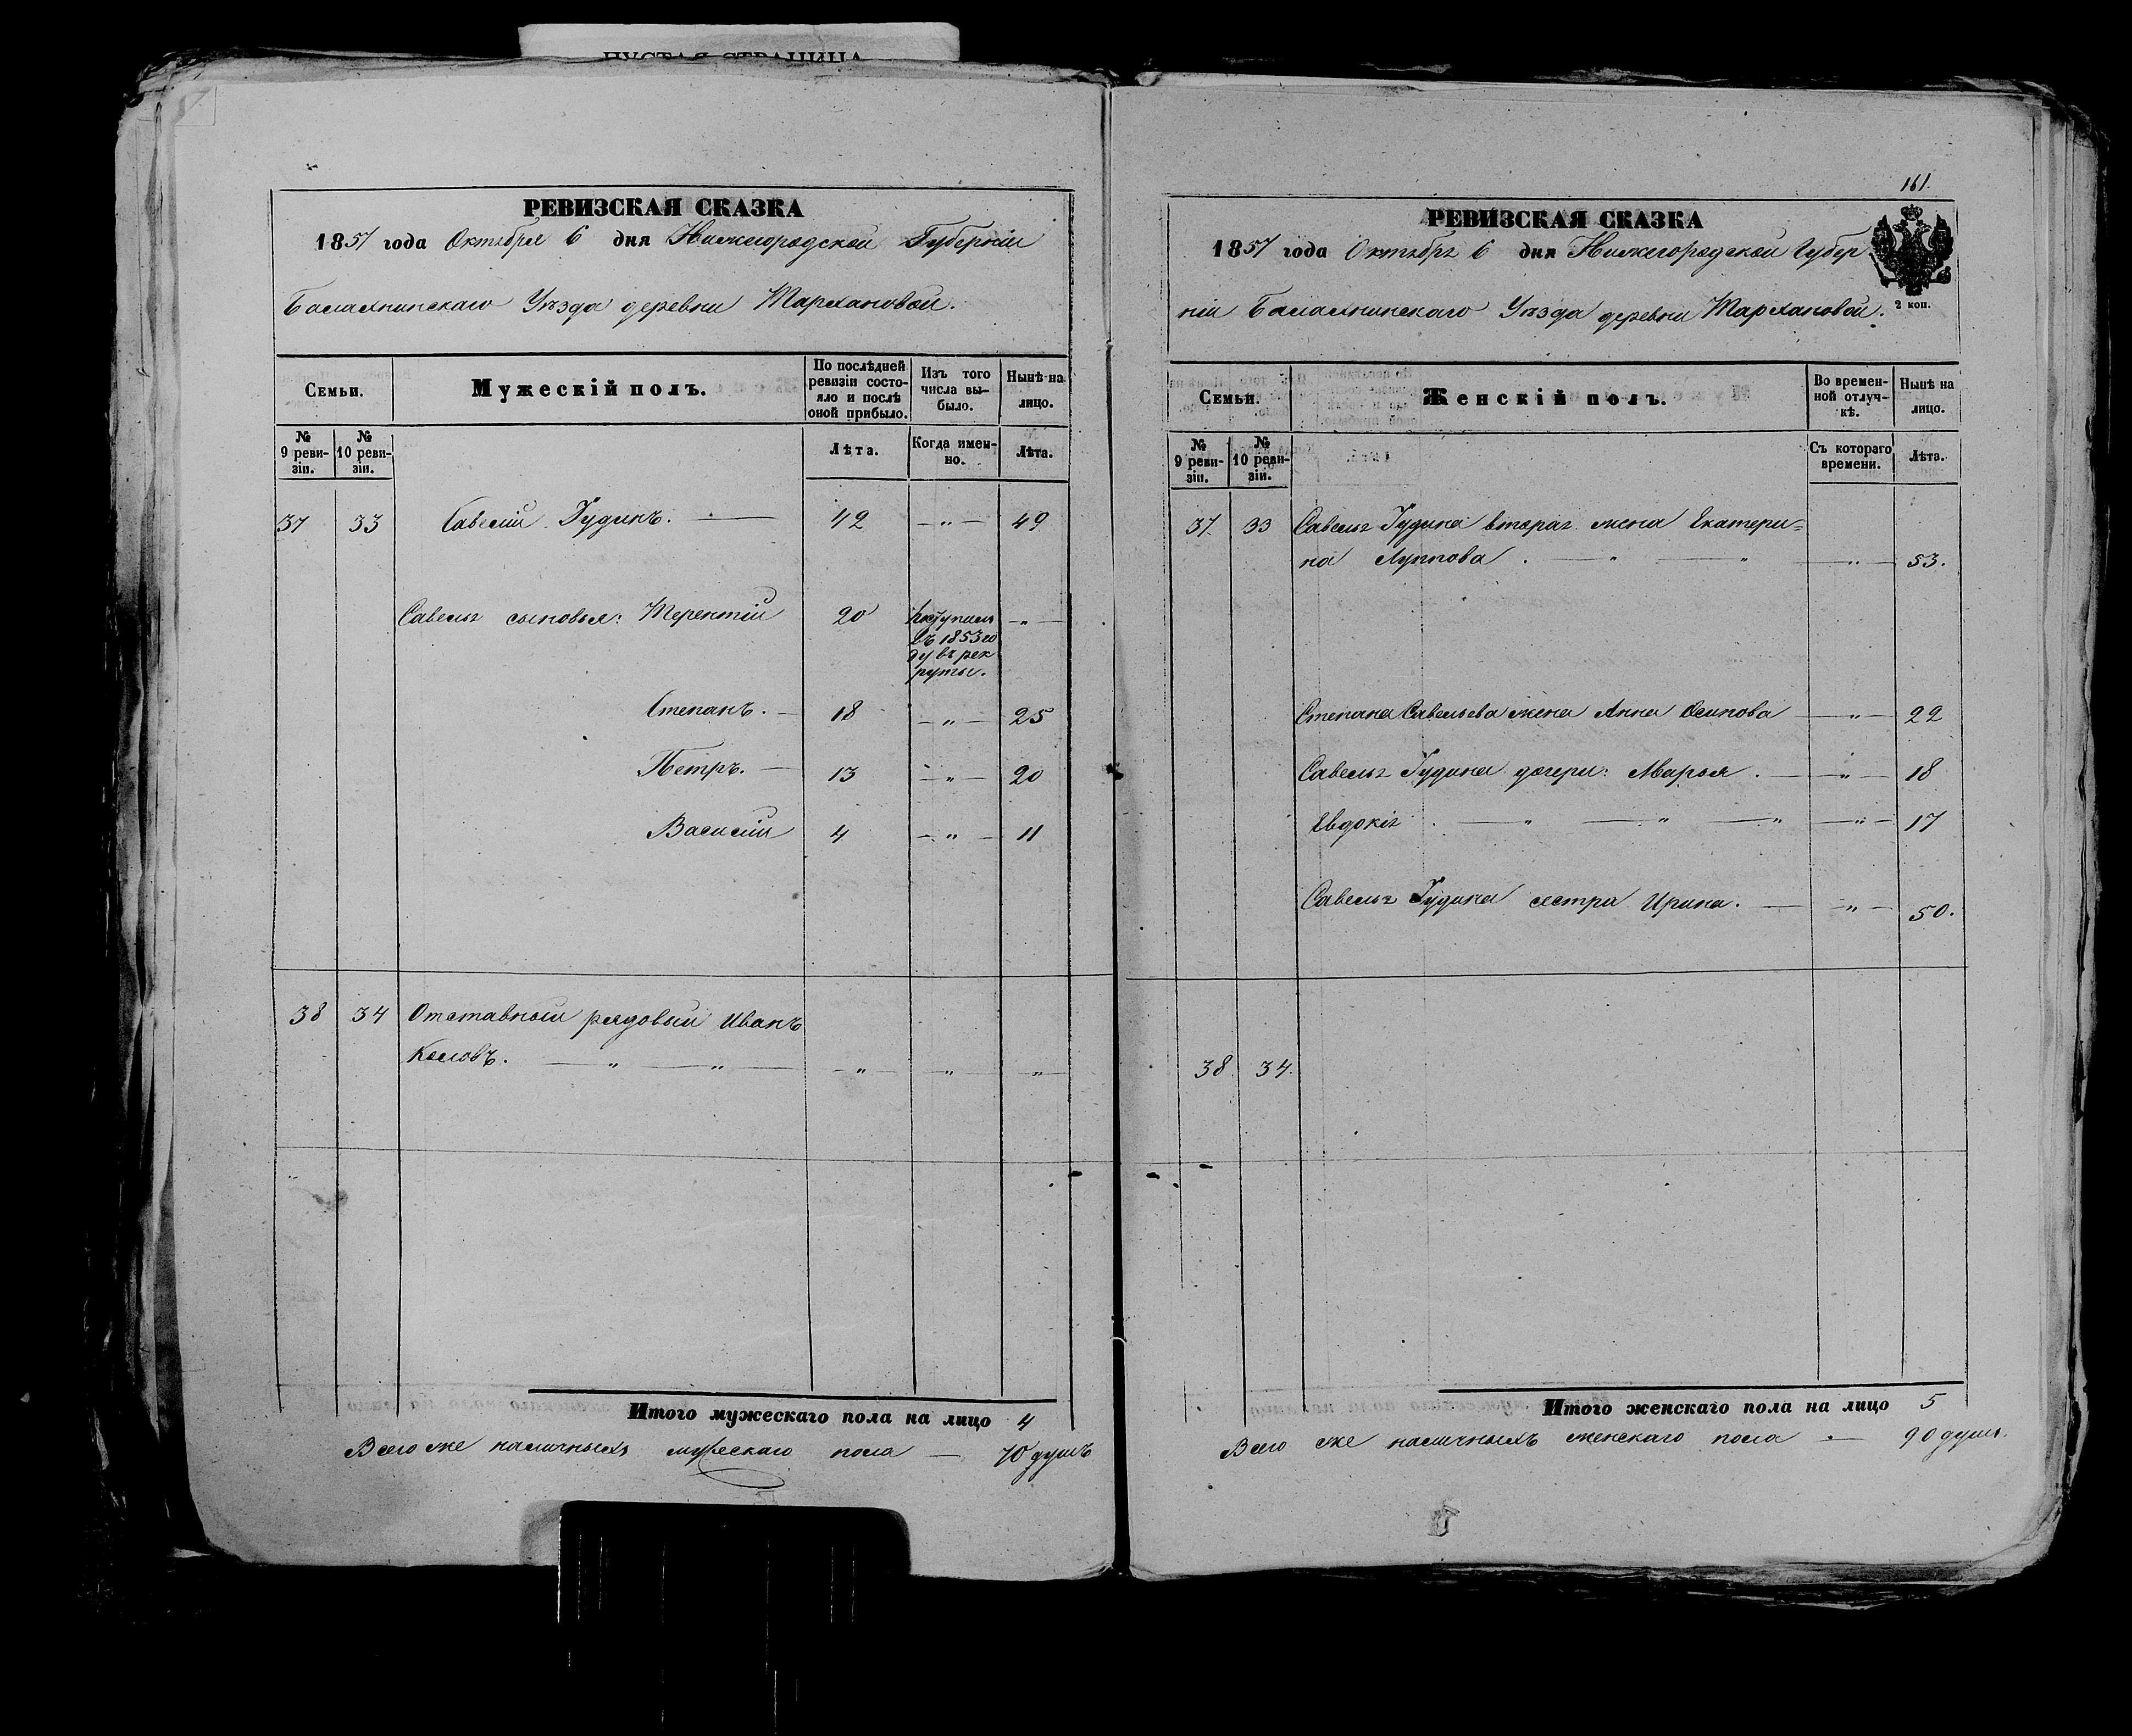 ПУСТАЯ СТРАНИЦА
РЕВИЗСКАЯ СКАЗКА
1857 года Октября 6 дня Нижегородской Губерніи
Балахнинскаго Уѣзда деревни Тархановой.
Семьи.
Мужескій полъ.
По послѣдней ревизіи состояло и послѣ оной прибыло.
Изъ того числа выбыло.
Нынѣ на лицо.
№ 9 ревизіи.
№ 10 ревизіи.
Лѣта.
Когда именно.
Лѣта.
37 33 Савелій Гудинъ. — 42 — „ — 49
Савелья сыновья: Терентій 20 Поступилъ — „ —
въ 1853 го
ду въ рек
руты.
Степанъ. — 18 — „ — 25
Петръ. — 13 — „ — 20
Василій 4 — „ — 11
38 34 Отставный рядовый Иванъ
— „ — „ — — „ — „ — „ —
Итого мужескаго пола на лицо 4
Всего же наличныхъ мужескаго пола — 70 душъ
161.
РЕВИЗСКАЯ СКАЗКА
1857 года Октября 6 дня Нижегородской Губер
ніи Балахнинскаго Уѣзда деревни Тархановой.
2 коп.
Семьи.
Женскій полъ.
Во временной отлучкѣ.
Нынѣ на лицо.
№ 9 ревизіи.
№ 10 ревизіи.
Съ котораго времени.
Лѣта.
37. 33 Савелья Гудина вторая жена Екатери=
на Луппова . — „ — „ — „ — 53.
Степана Савельева жена Анна Осипова — „ — 22
Савелья Гудина дочери: Марья . — „ — 18
Евдокія . — „ — „ — „ — „ — 17
Савелья Гудина сестра Ирина. — — „ — 50.
38 34.
Итого женскаго пола на лицо 5
Всего же наличныхъ женскаго пола — 90 душъ.